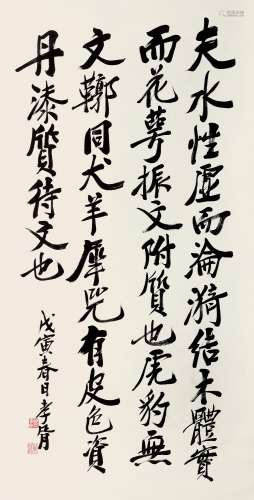 夫水性虛而淪漪結木體實
而花萼振文附質也虎豹無
文鞹同犬羊犀兕有皮色資
丹漆質待文也
戊寅春日孝胥